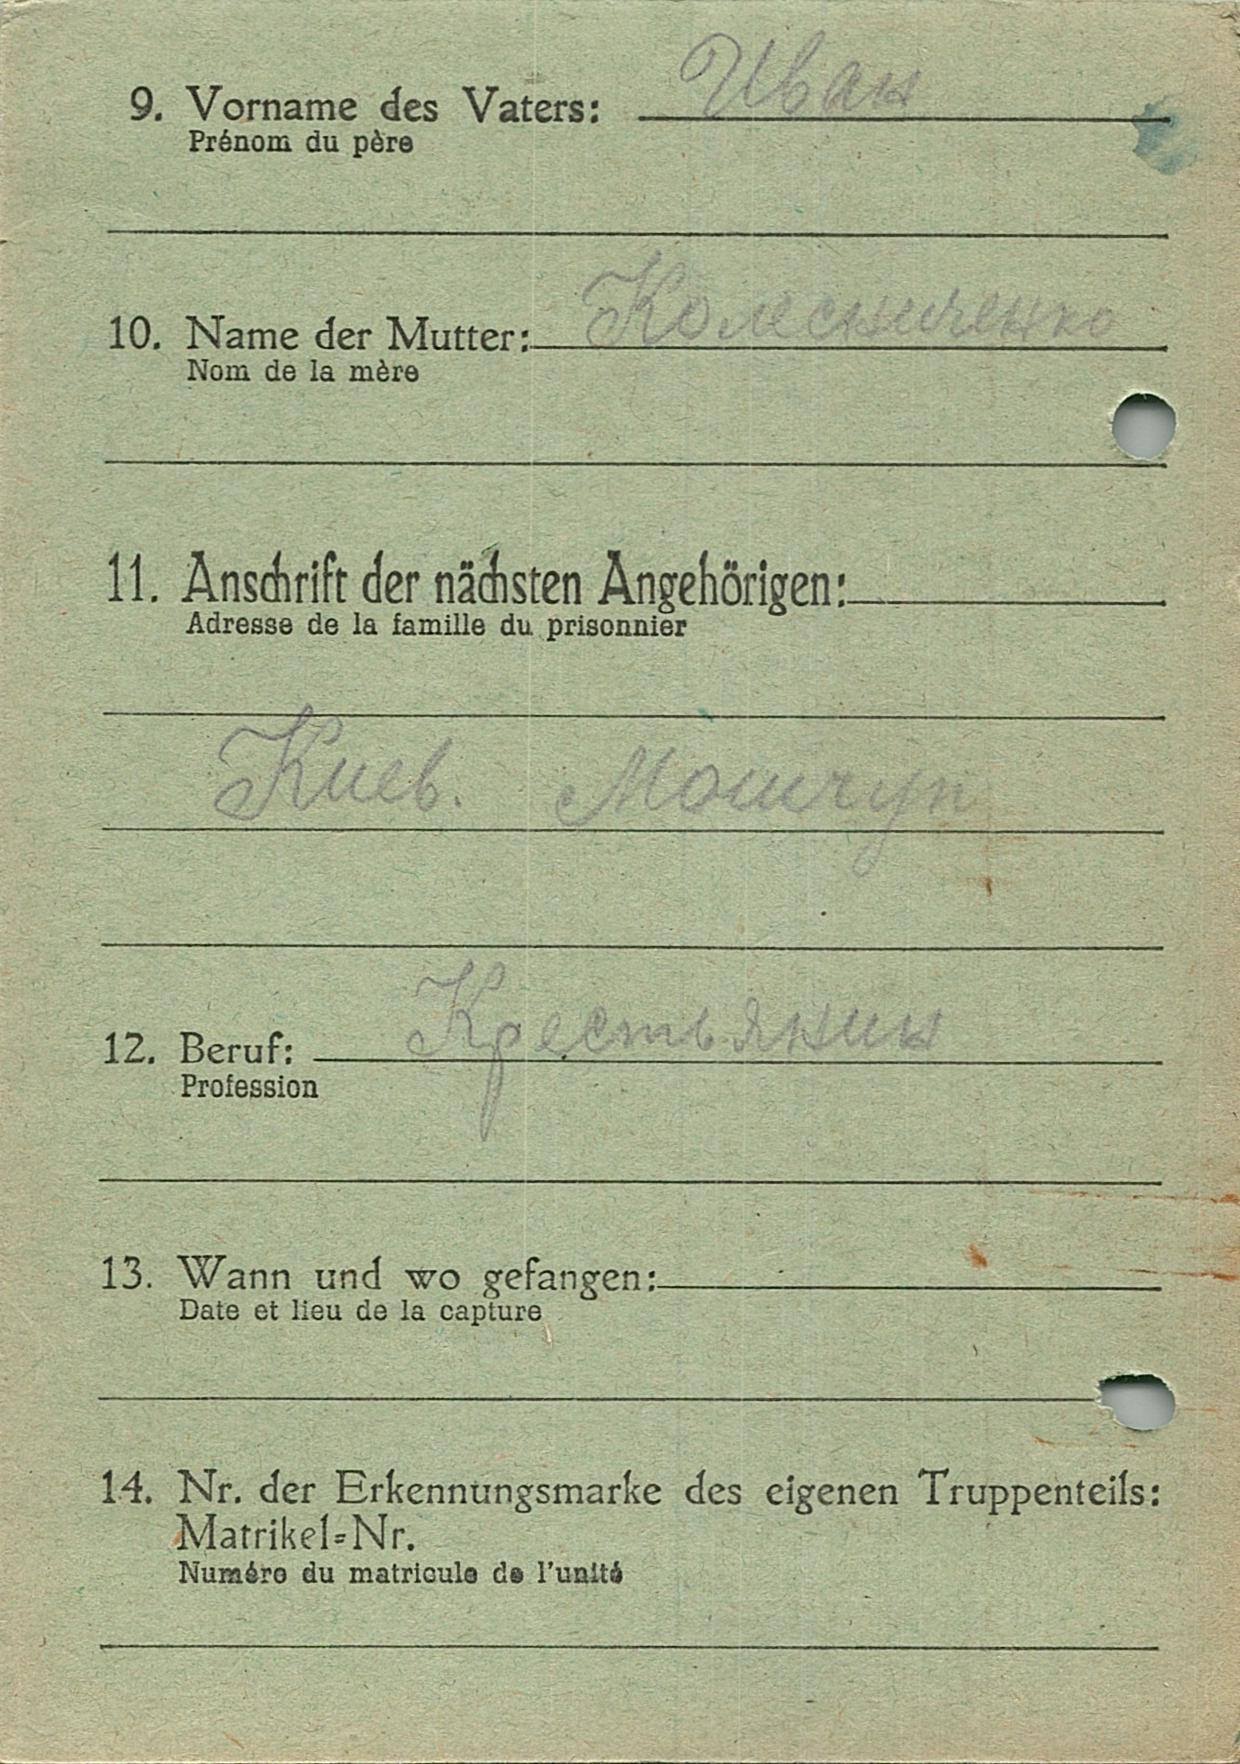 9. Vorname des Vaters: Иван
Prénom du père
10. Name der Mutter: Колесниченко
Nom de la mère
11. Anschrift der nächsten Angehörigen:
Adresse de la famille du prisonnier
Киев. Мощун
12. Beruf: Крестьянин
Profession
13. Wann und wo gefangen:
Date et lieu de la capture
14. Nr. der Erkennungsmarke des eigenen Truppenteils:
Matrikel=Nr.
Numéro du matricule de l'unité